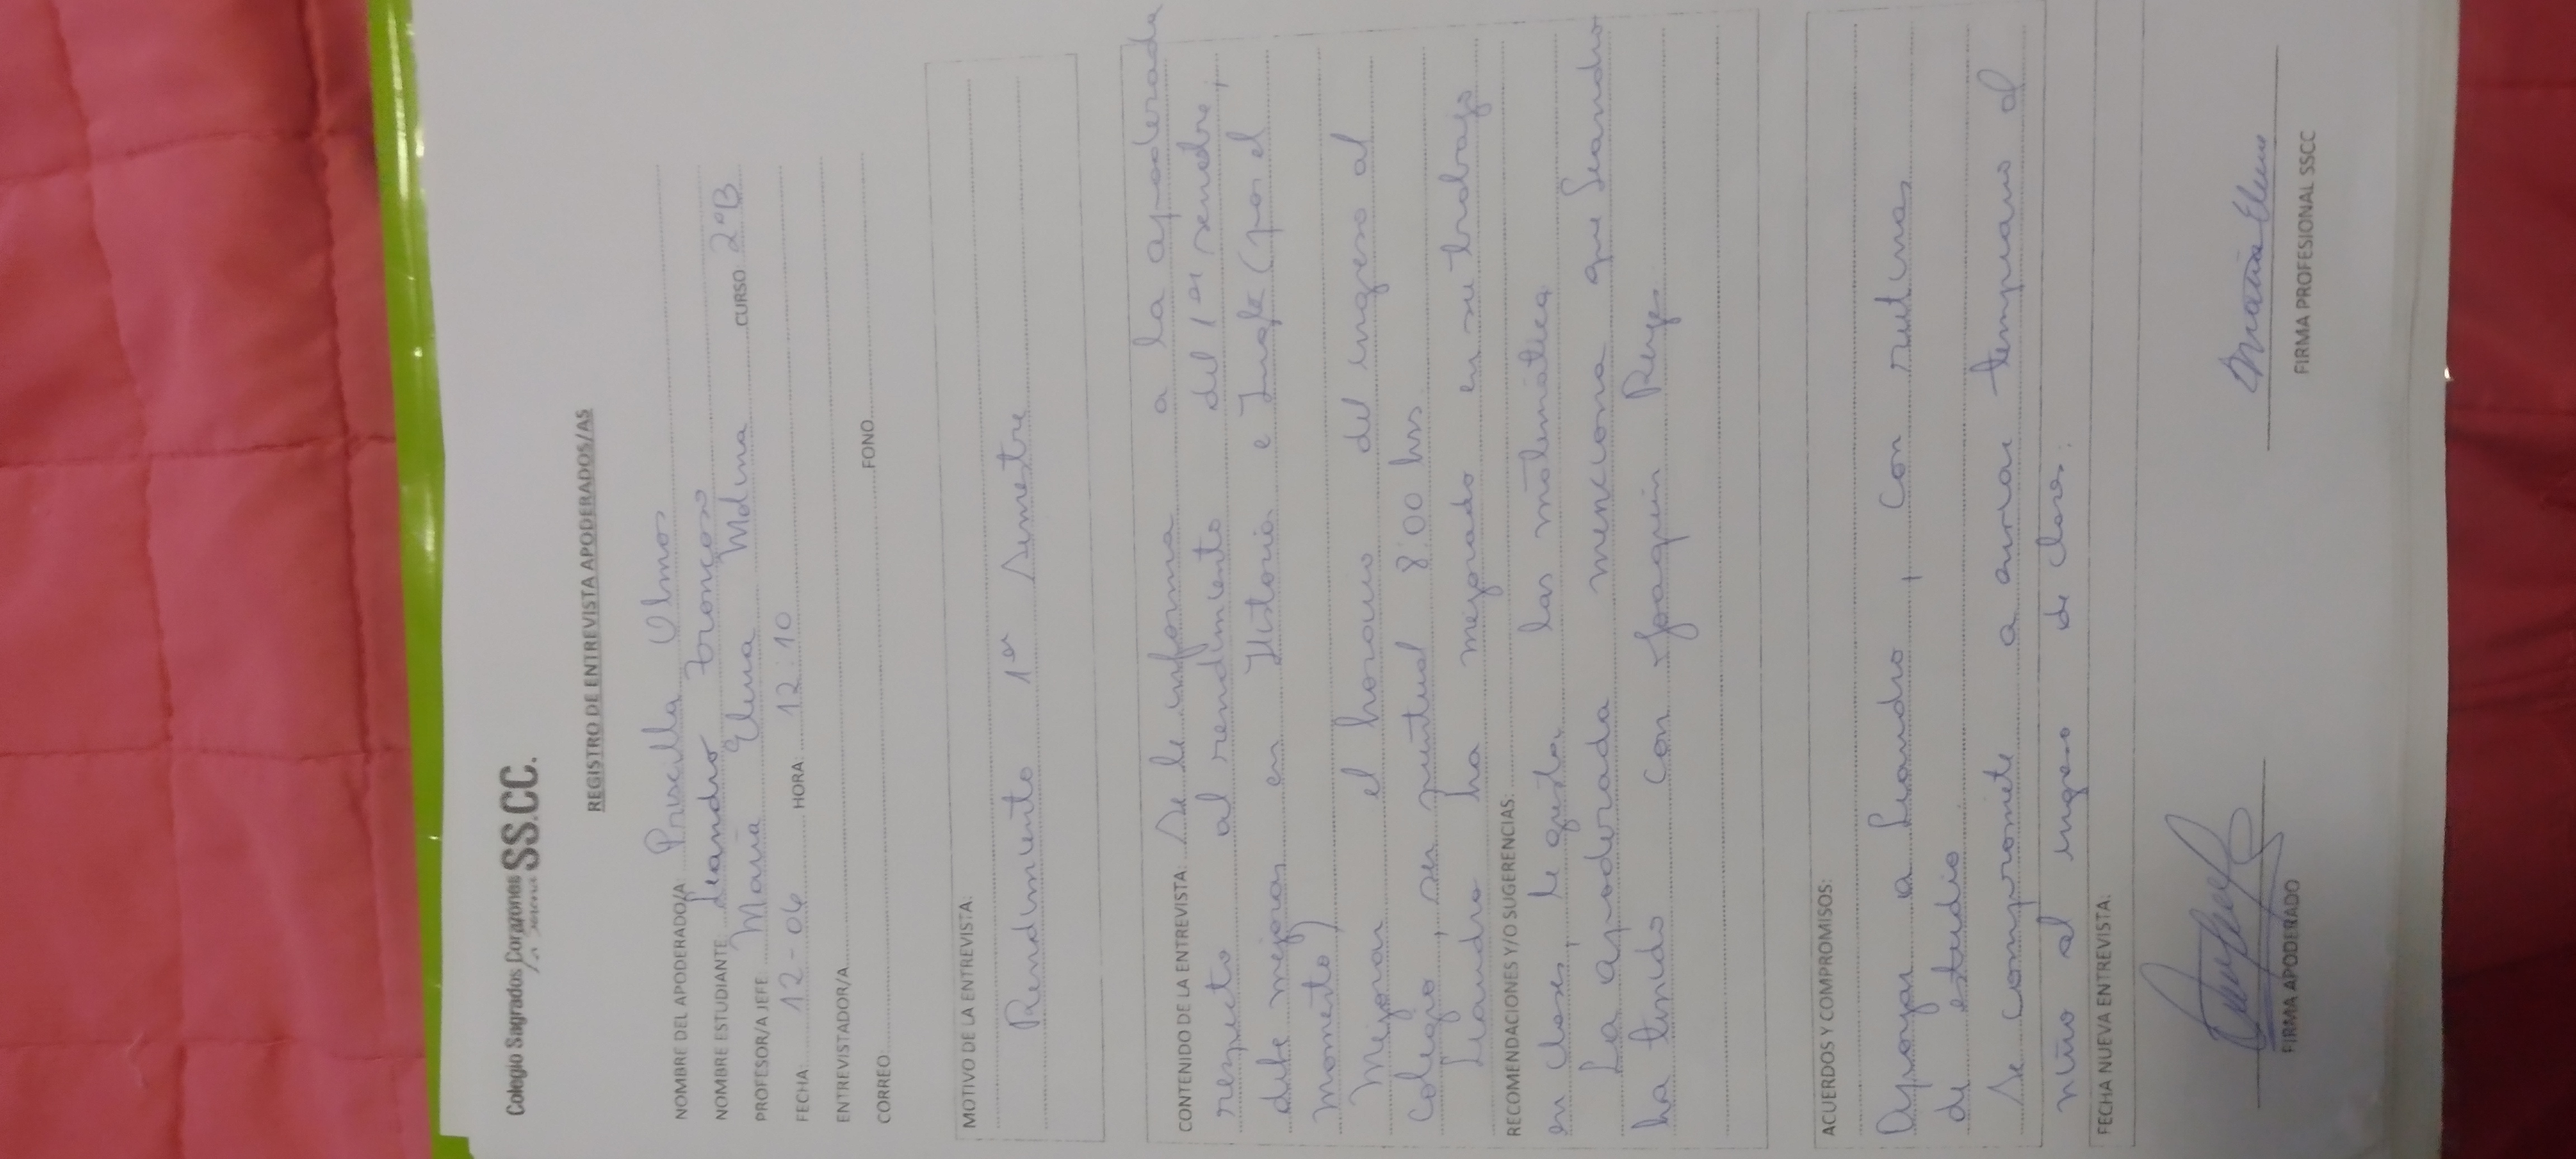 Colegio Sagrados Corazones SS.CC.
La Serena
REGISTRO DE ENTREVISTA APODERADOS/AS
NOMBRE DEL APODERADO/A: Priscilla Olmos
NOMBRE ESTUDIANTE Leandro Troncoso
PROFESOR/A JEFE María Elena Molina CURSO 2ºB
FECHA: 12-06 HORA: 12:10
ENTREVISTADOR/A
CORREO: FONO
MOTIVO DE LA ENTREVISTA:
Rendimiento 1er Semestre
CONTENIDO DE LA ENTREVISTA: Se le informa a la apoderada
respecto al rendimiento del 1er semestre,
debe mejorar en Historia e Inglés (por el
momento)
Mejorar el horario del ingreso al
colegio, ser puntual 8:00 hrs
Leandro ha mejorado en su trabajo
RECOMENDACIONES Y/O SUGERENCIAS:
en clases, le gustan las matemática
La apoderada menciona que Leandro
ha tenido con Joaquín
ACUERDOS Y COMPROMISOS:
Apoyar a Leandro, con rutinas
de estudio
Se compromete a enviar temprano al
niño al ingreso de clases.
FECHA NUEVA ENTREVISTA:
María Elena
FIRMA APODERADO
FIRMA PROFESIONAL SSCC